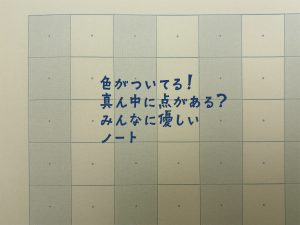 色がついてる!
真ん中に点がある?
みんなに優しい
ノート